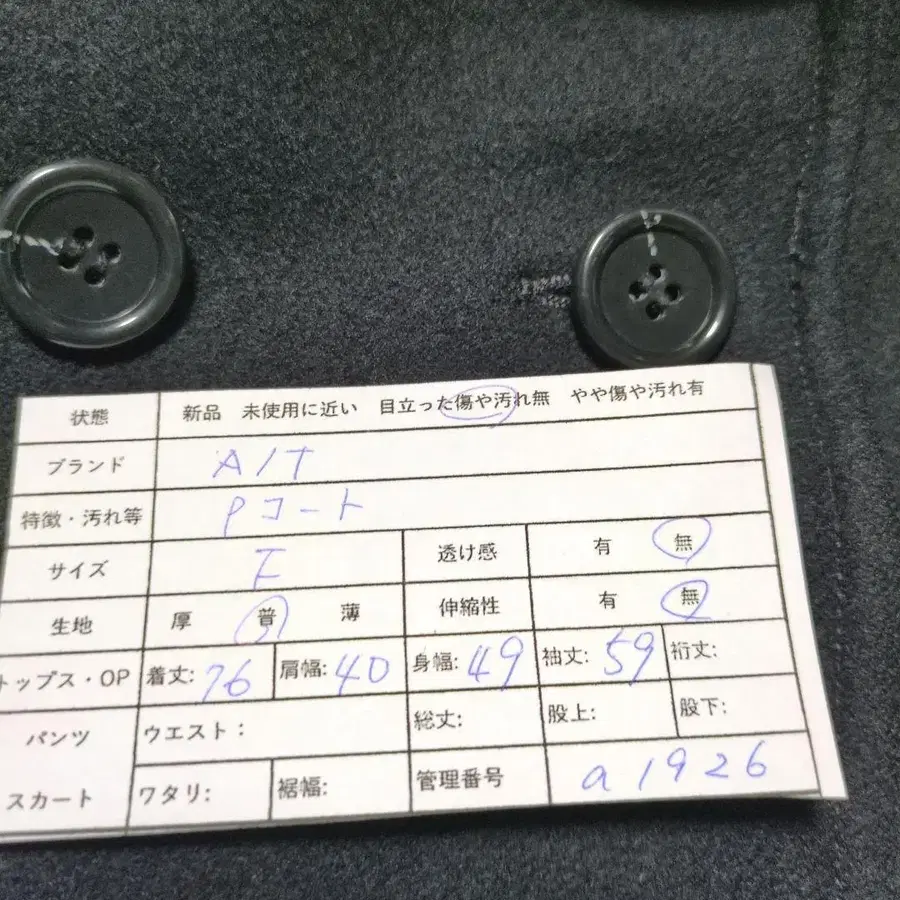 状態 新品 未使用に近い 目立った傷や汚れ無 やや傷や汚れ有
ブランド A/T
特徴・汚れ等 Pコート
サイズ 透け感 有 無
生地 厚 普 薄 伸縮性 有 無
トップス・OP 着丈: 76 肩幅: 40 身幅: 49 袖丈: 59 裄丈:
パンツ ウエスト: 総丈: 股上: 股下:
スカート ワタリ: 裾幅: 管理番号 a1926